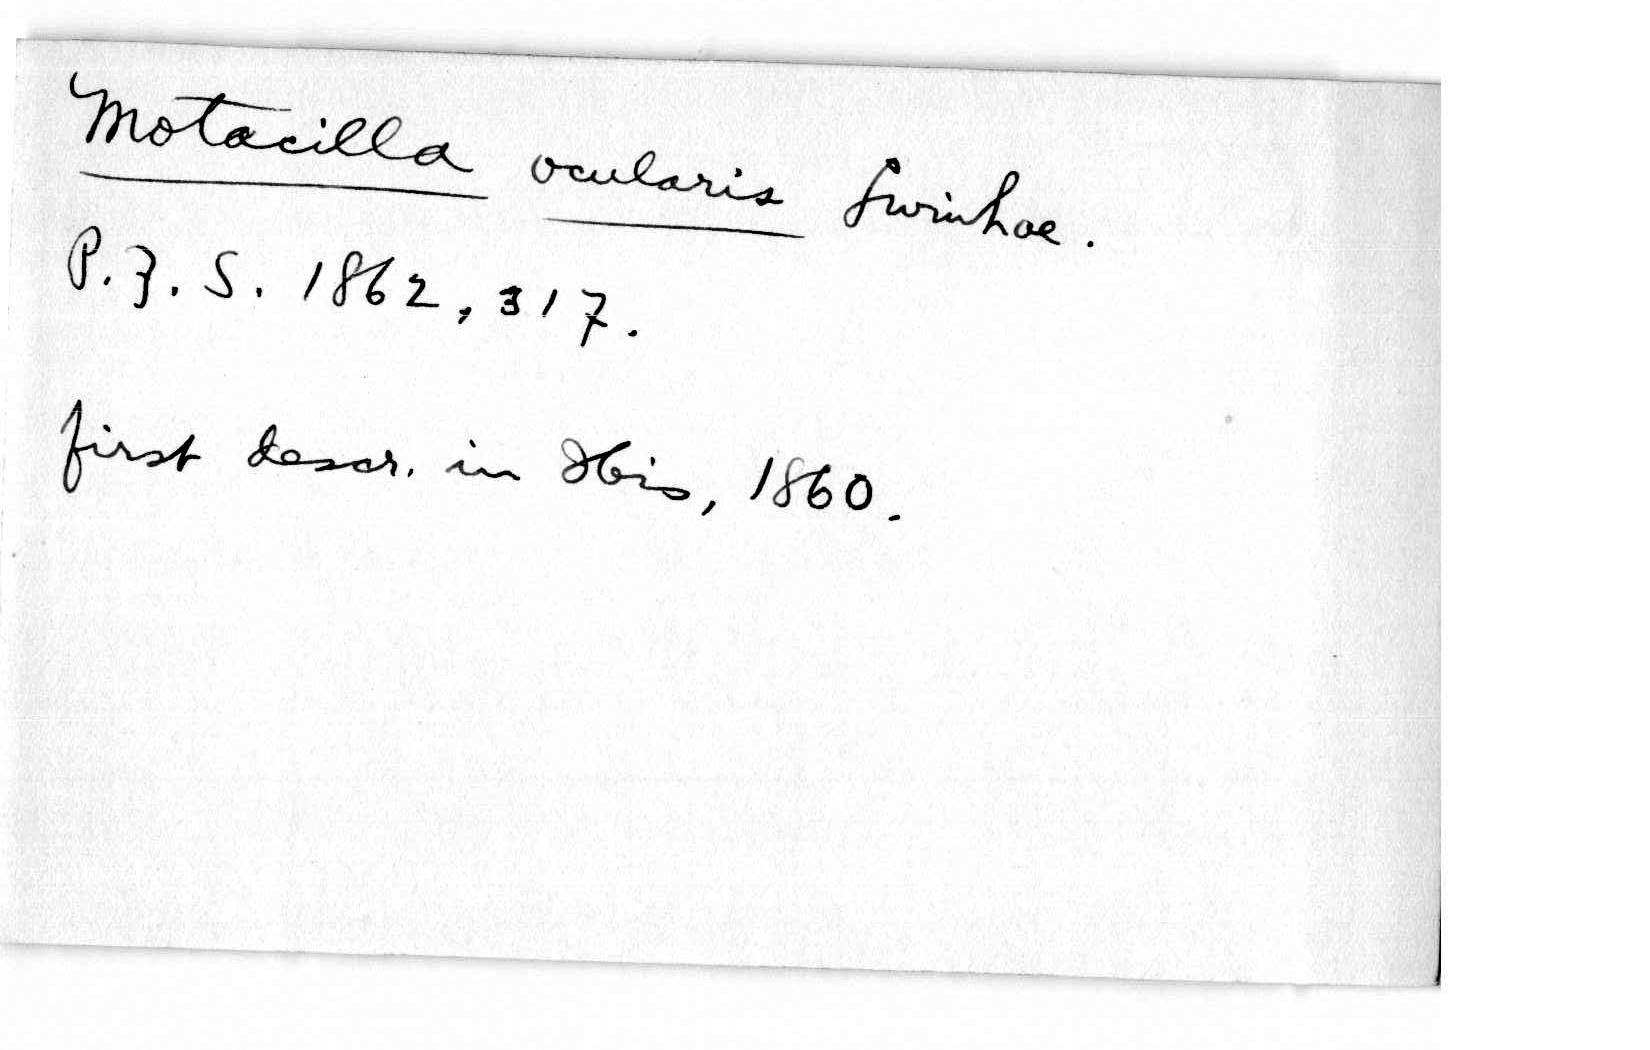 Motacilla ocularis Swinhoe.
P.Z.S. 1862, 317.
first descr. in Ibis, 1860.